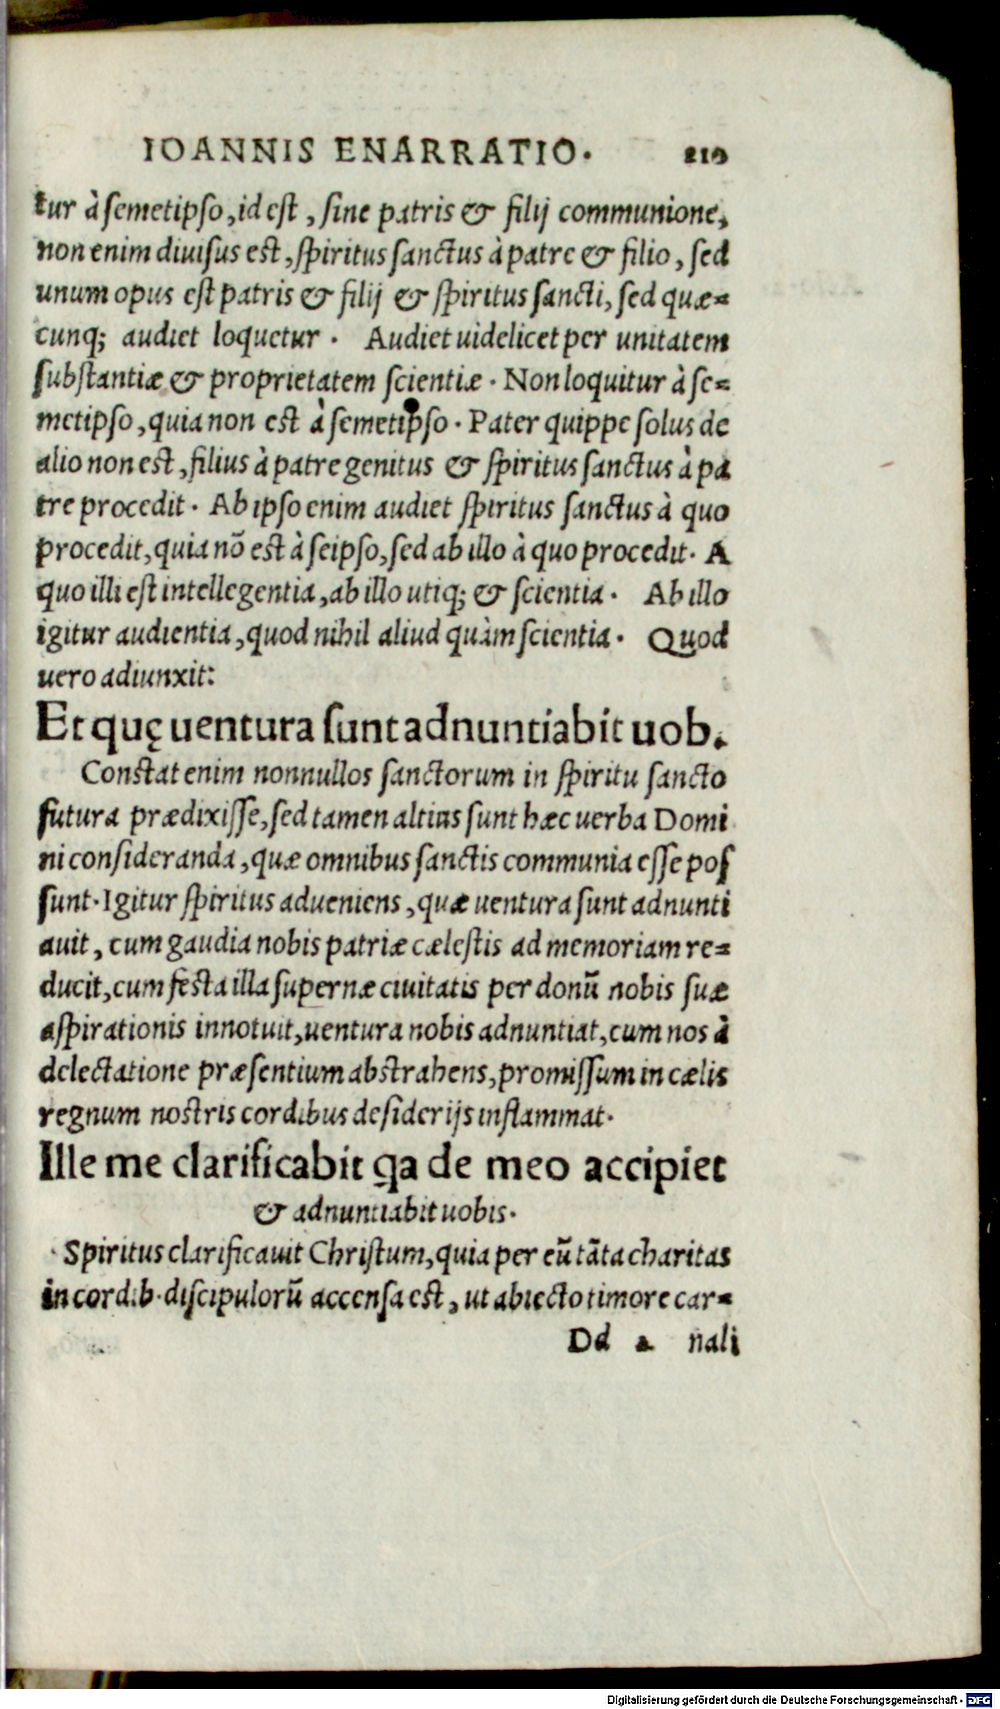 IOANNIS ENARRATIO. 210
tur à semetipso, id est, sine patris & filij communione,
non enim diuisus est, spiritus sanctus à patre & filio, sed
unum opus est patris & filij & spiritus sancti, sed quæ=
cunq; audiet loquetur. Audiet uidelicet per unitatem
substantiæ & proprietatem scientiæ. Non loquitur à se=
metipso, quia non est à semetipso. Pater quippe solus de
alio non est, filius à patre genitus & spiritus sanctus à pa
tre procedit. Ab ipso enim audiet spiritus sanctus à quo
procedit, quia nõ est à seipso, sed ab illo à quo procedit. A
quo illi est intellegentia, ab illo utiq; & scientia. Ab illo
igitur audientia, quod nihil aliud quàm scientia. Quod
uero adiunxit:
Et quę uentura sunt adnuntiabit uob.
Constat enim nonnullos sanctorum in spiritu sancto
futura prædixisse, sed tamen altius sunt hæc uerba Domi
ni consideranda, quæ omnibus sanctis communia esse pos
sunt. Igitur spiritus adueniens, quæ uentura sunt adnunti
auit, cum gaudia nobis patriæ cælestis ad memoriam re=
ducit, cum festa illa supernæ ciuitatis per donũ nobis suæ
aspirationis innotuit, uentura nobis adnuntiat, cum nos à
delectatione præsentium abstrahens, promissum in cælis
regnum nostris cordibus desiderijs inflammat.
Ille me clarificabit qa de meo accipiet
& adnuntiabit uobis.
Spiritus clarificauit Christum, quia per eũ tãta charitas
in cordib. discipulorũ accensa est, ut abiecto timore car=
Dd 2 nali
Digitalisierung gefördert durch die Deutsche Forschungsgemeinschaft - DFG